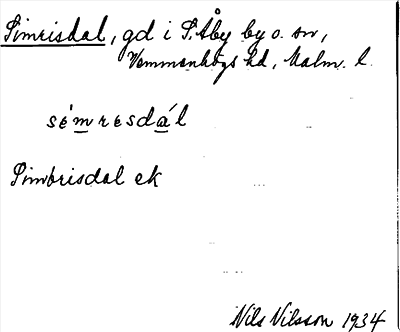 Simrisdal, gd i S. Åby by o. sn,
Vemmenhögs hd, Malm. l.
sémresdál
Simbrisdal ek
Nils Nilsson 1934